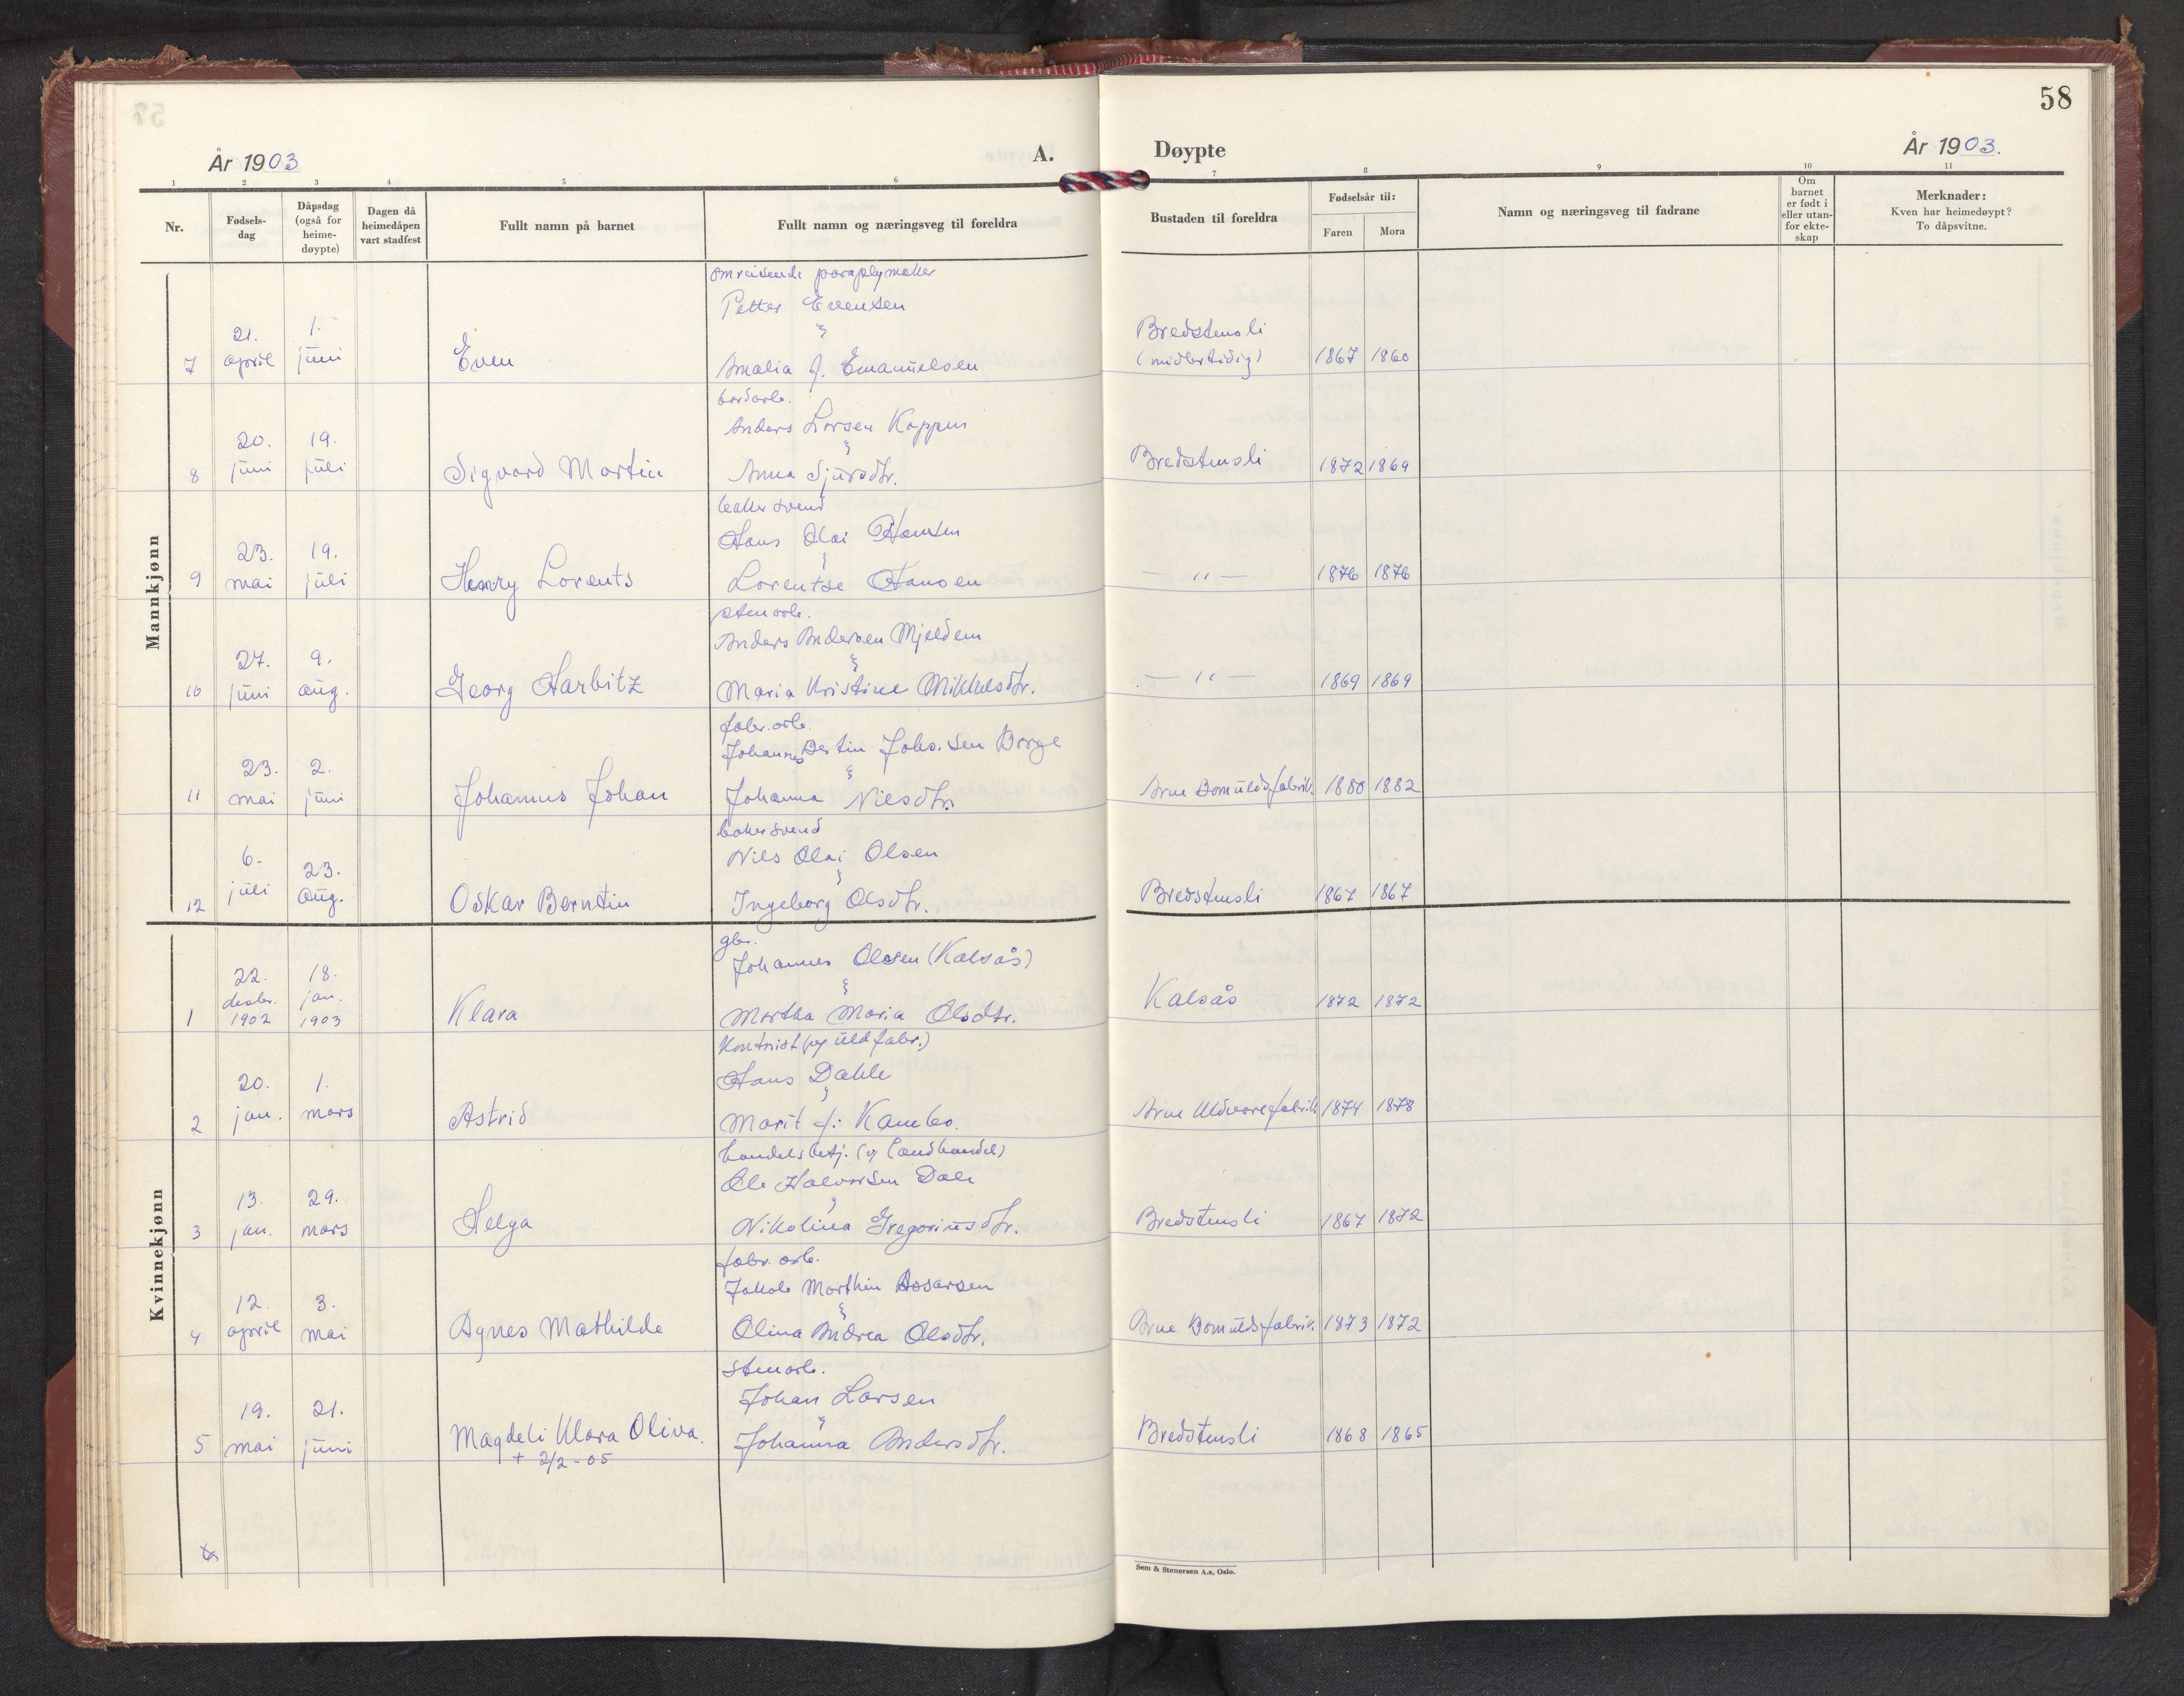 58
År 1903
A.
Døypte
År 1903.
1 2 3 4 5 6 7 8 9 10 11
Nr.
Fødsels-
dag
Dåpsdag
(også for
heime-
døypte)
Dagen då
heimedåpen
vart stadfest
Fullt namn på barnet
Fullt namn og næringsveg til foreldra
Bustaden til foreldra
Fødselsår til:
Faren Mora
Namn og næringsveg til fadrane
Om
barnet
er født i
eller utan-
for ekte-
skap
Merknader:
Kven har heimedøypt?
To dåpsvitne.
Mannkjønn
omreisende paraplymaker
Petter Evensen
7 21. april 1. juni Even Amalia f. Emanuelsen Bredstensli (midlertidig) 1867 1860
bordarb.
Anders Larsen Koppen
8 20. juni 19. juli Sigvard Martin Anna Sjursdtr. Bredstensli 1872 1869
bakersvend
Hans Olai Hansen
9 23. mai 19. juli Henry Lorents Lorentse Hansen — " — 1876 1876
stenarb.
Anders Andersen Mjeldem
10 27. juni 9. aug. Georg Harbitz Maria Kristine Mikkelsdtr. — " — 1869 1869
fabr. arb.
Johannes Bertin Johs.sen Borge
11 23. mai 2. juni Johannes Johan Johanna Nilsdtr. Arne Bomuldsfabrik. 1880 1882
bakersvend
Nils Olai Olsen
12 6. juli 23. aug. Oskar Berntin Ingeborg Olsdtr. Bredstensli 1867 1867
Kvinnekjønn
gbr.
Johannes Olsen (Kalsås)
1 22. desbr. 1902 18. jan. 1903 Klara Martha Maria Olsdtr. Kalsås 1872 1872
Kontorist (pg uldfabr.)
Hans Dahle
2 20. jan. 1. mars Astrid Marit f: Kambo. Arne Uldvarefabrik 1874 1878
handelsbetj. (v landhandel)
Ole Halvorsen Dale
3 13. jan. 29. mars Helga Nikolina Gregoriusdtr. Bredstensli 1867 1872
fabr. arb.
Jakob Marthin Assarsen
4 12. april 3. mai Agnes Mathilde Olina Andrea Olsdtr. Arne Bomuldsfabrik. 1873 1872
stenarb.
Johan Larsen
5 19. mai 21. juni Magdeli Klara Oliva. Johanna Andersdtr. Bredstensli 1868 1865
+ 2/2-05
Sem & Stenersen A.s, Oslo.